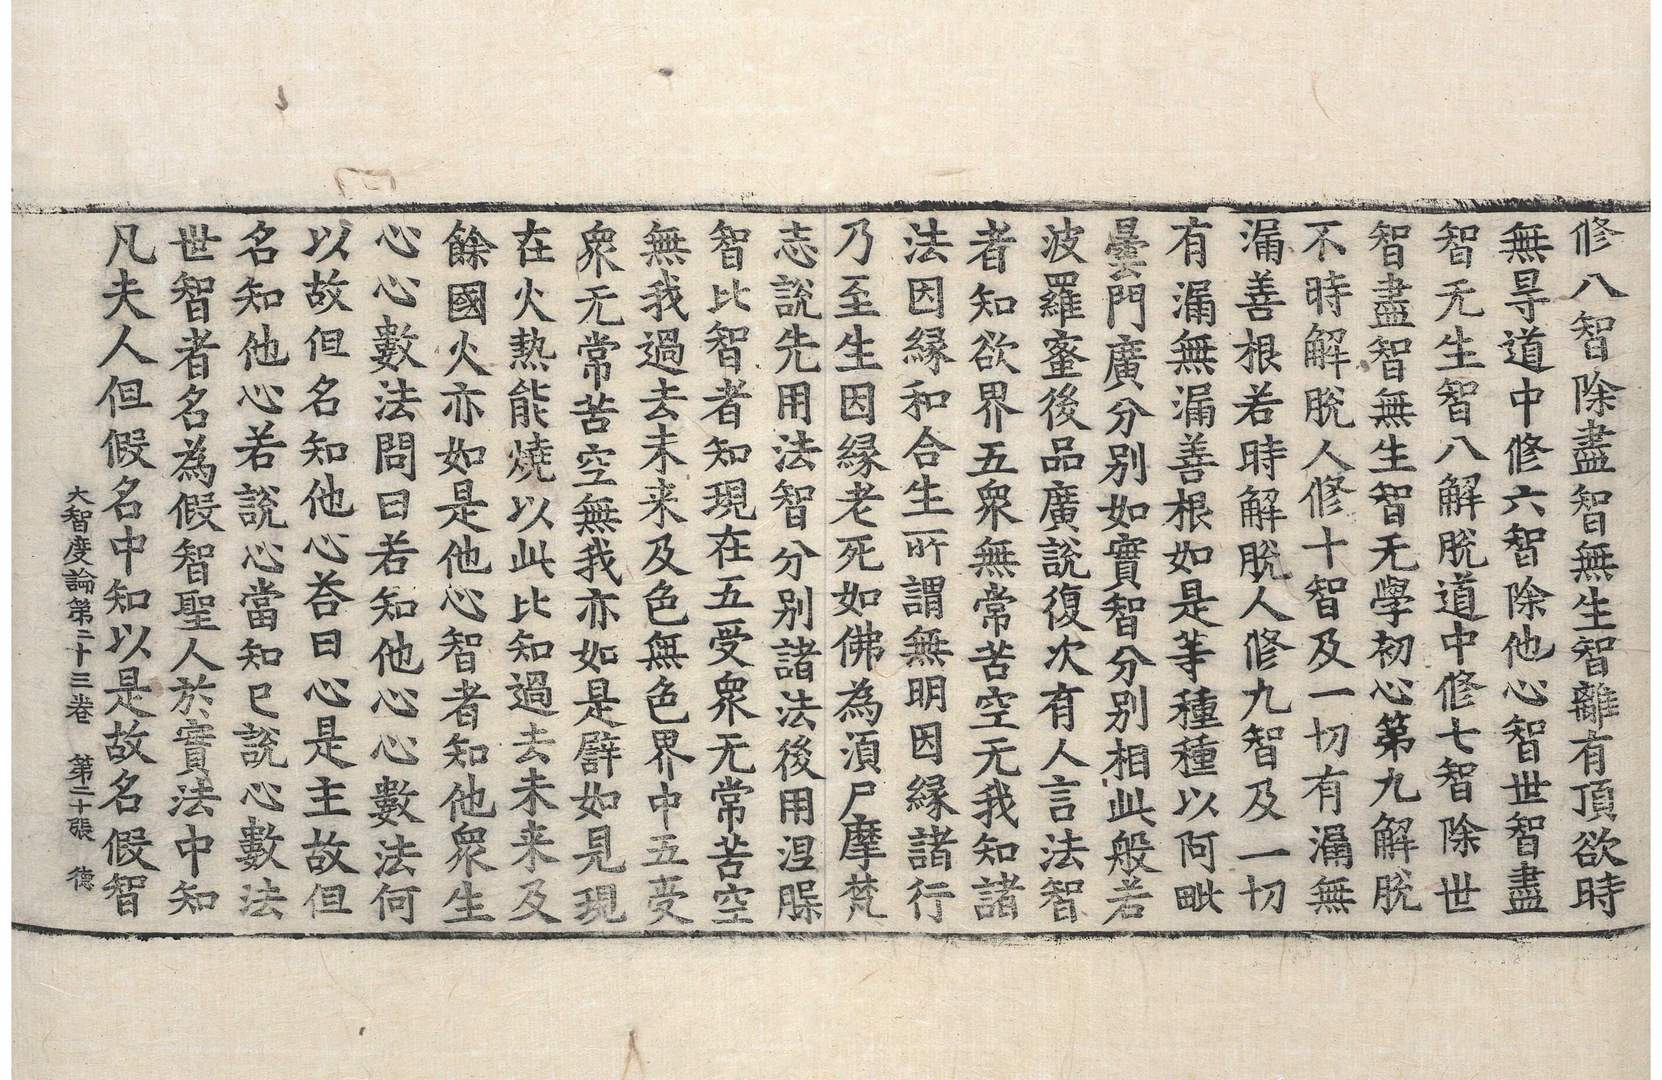 修八智除盡智無生智離有頂欲時
無㝵道中修六智除他心智世智盡
智无生智八解脫道中修七智除世
智盡智無生智无學初心第九解脫
不時解脫人修十智及一切有漏無
漏善根若時解脫人修九智及一切
有漏無漏善根如是等種種以阿毗
曇門廣分別如實智分別相此般若
波羅蜜後品廣說復次有人言法智
者知欲界五衆無常苦空无我知諸
法因緣和合生所謂無明因緣諸行
乃至生因緣老死如佛為湏尸摩梵
志說先用法智分別諸法後用涅槃
智比智者知現在五受衆无常苦空
無我過去未来及色無色界中五受
衆无常苦空無我亦如是譬如見現
在火熱能燒以此比知過去未来及
餘國火亦如是他心智者知他衆生
心心數法問曰若知他心心數法何
以故但名知他心荅曰心是主故但
名知他心若說心當知已說心數法
世智者名為假智聖人於實法中知
凡夫人但假名中知以是故名假智
大智度論第二十三卷　第二十張　德